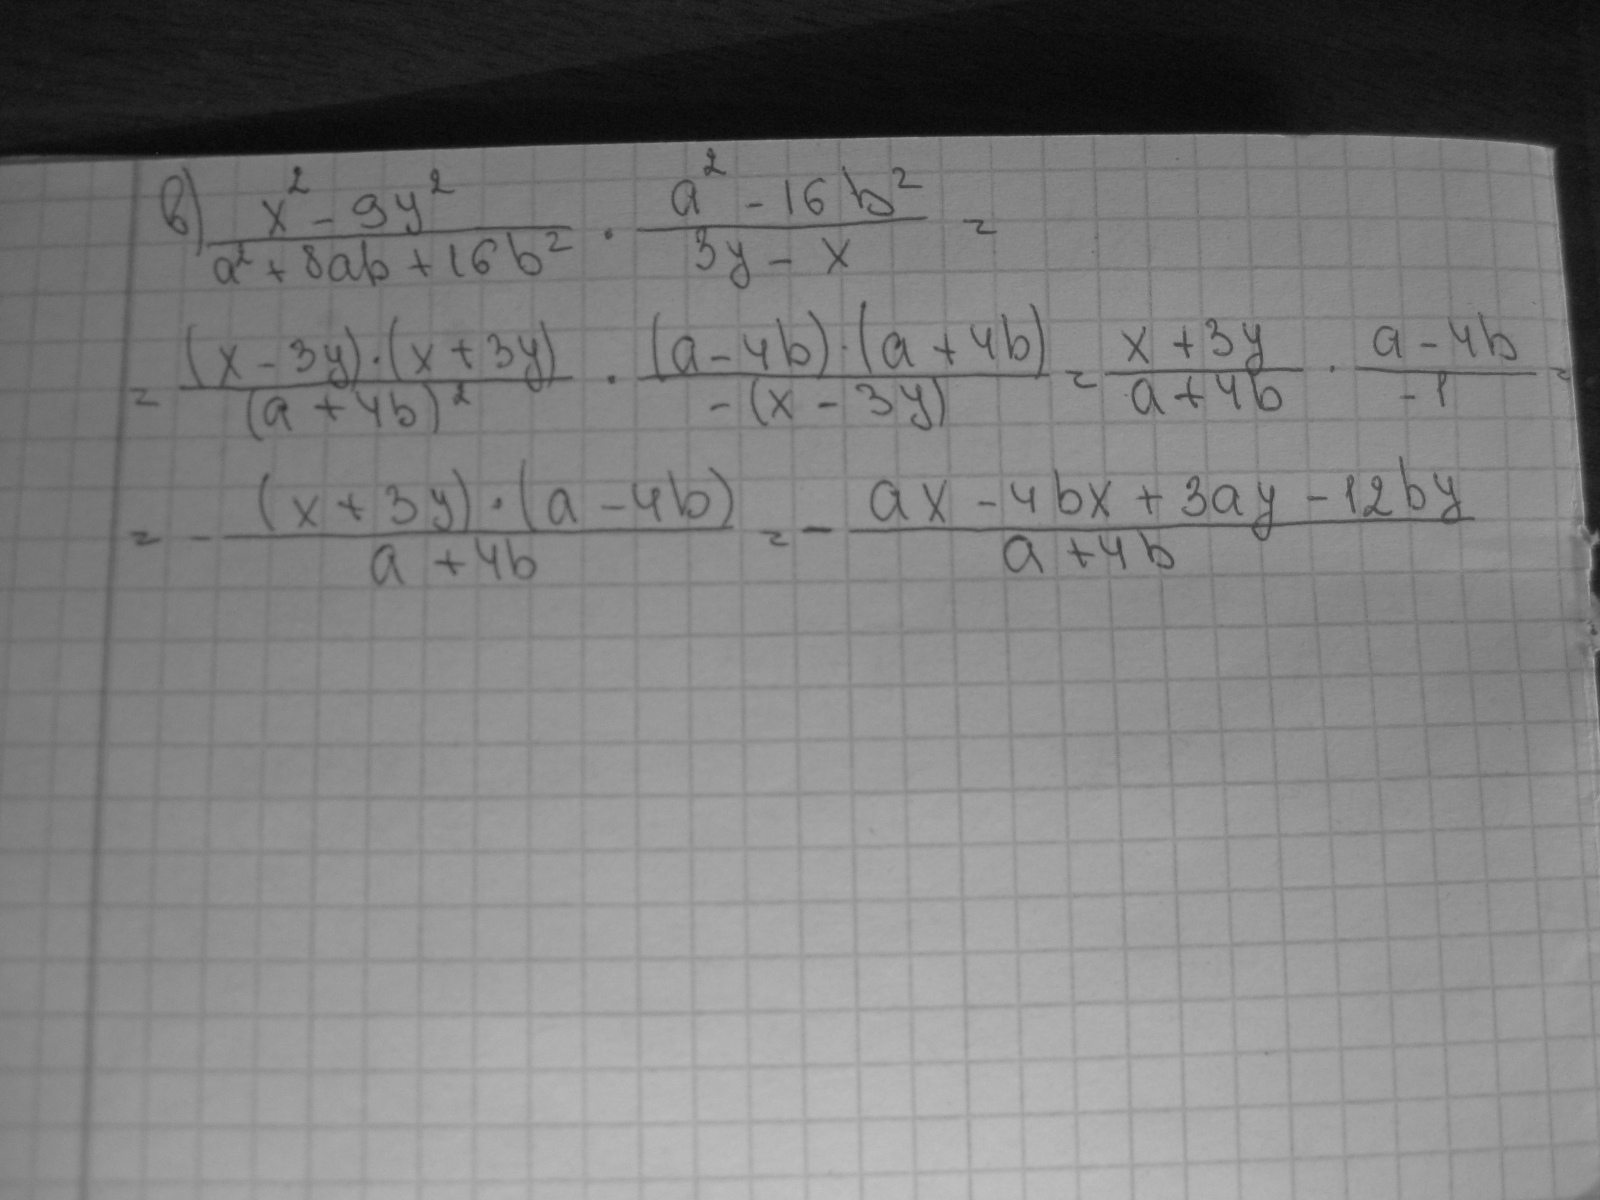 в) (x² - 9y²)/(a² + 8ab + 16b²) · (a² - 16b²)/(3y - x) =
= ((x - 3y)·(x + 3y))/((a + 4b)²) · ((a - 4b)·(a + 4b))/(-(x - 3y)) = (x + 3y)/(a + 4b) · (a - 4b)/(-1) =
= - ((x + 3y)·(a - 4b))/(a + 4b) = - (ax - 4bx + 3ay - 12by)/(a + 4b)